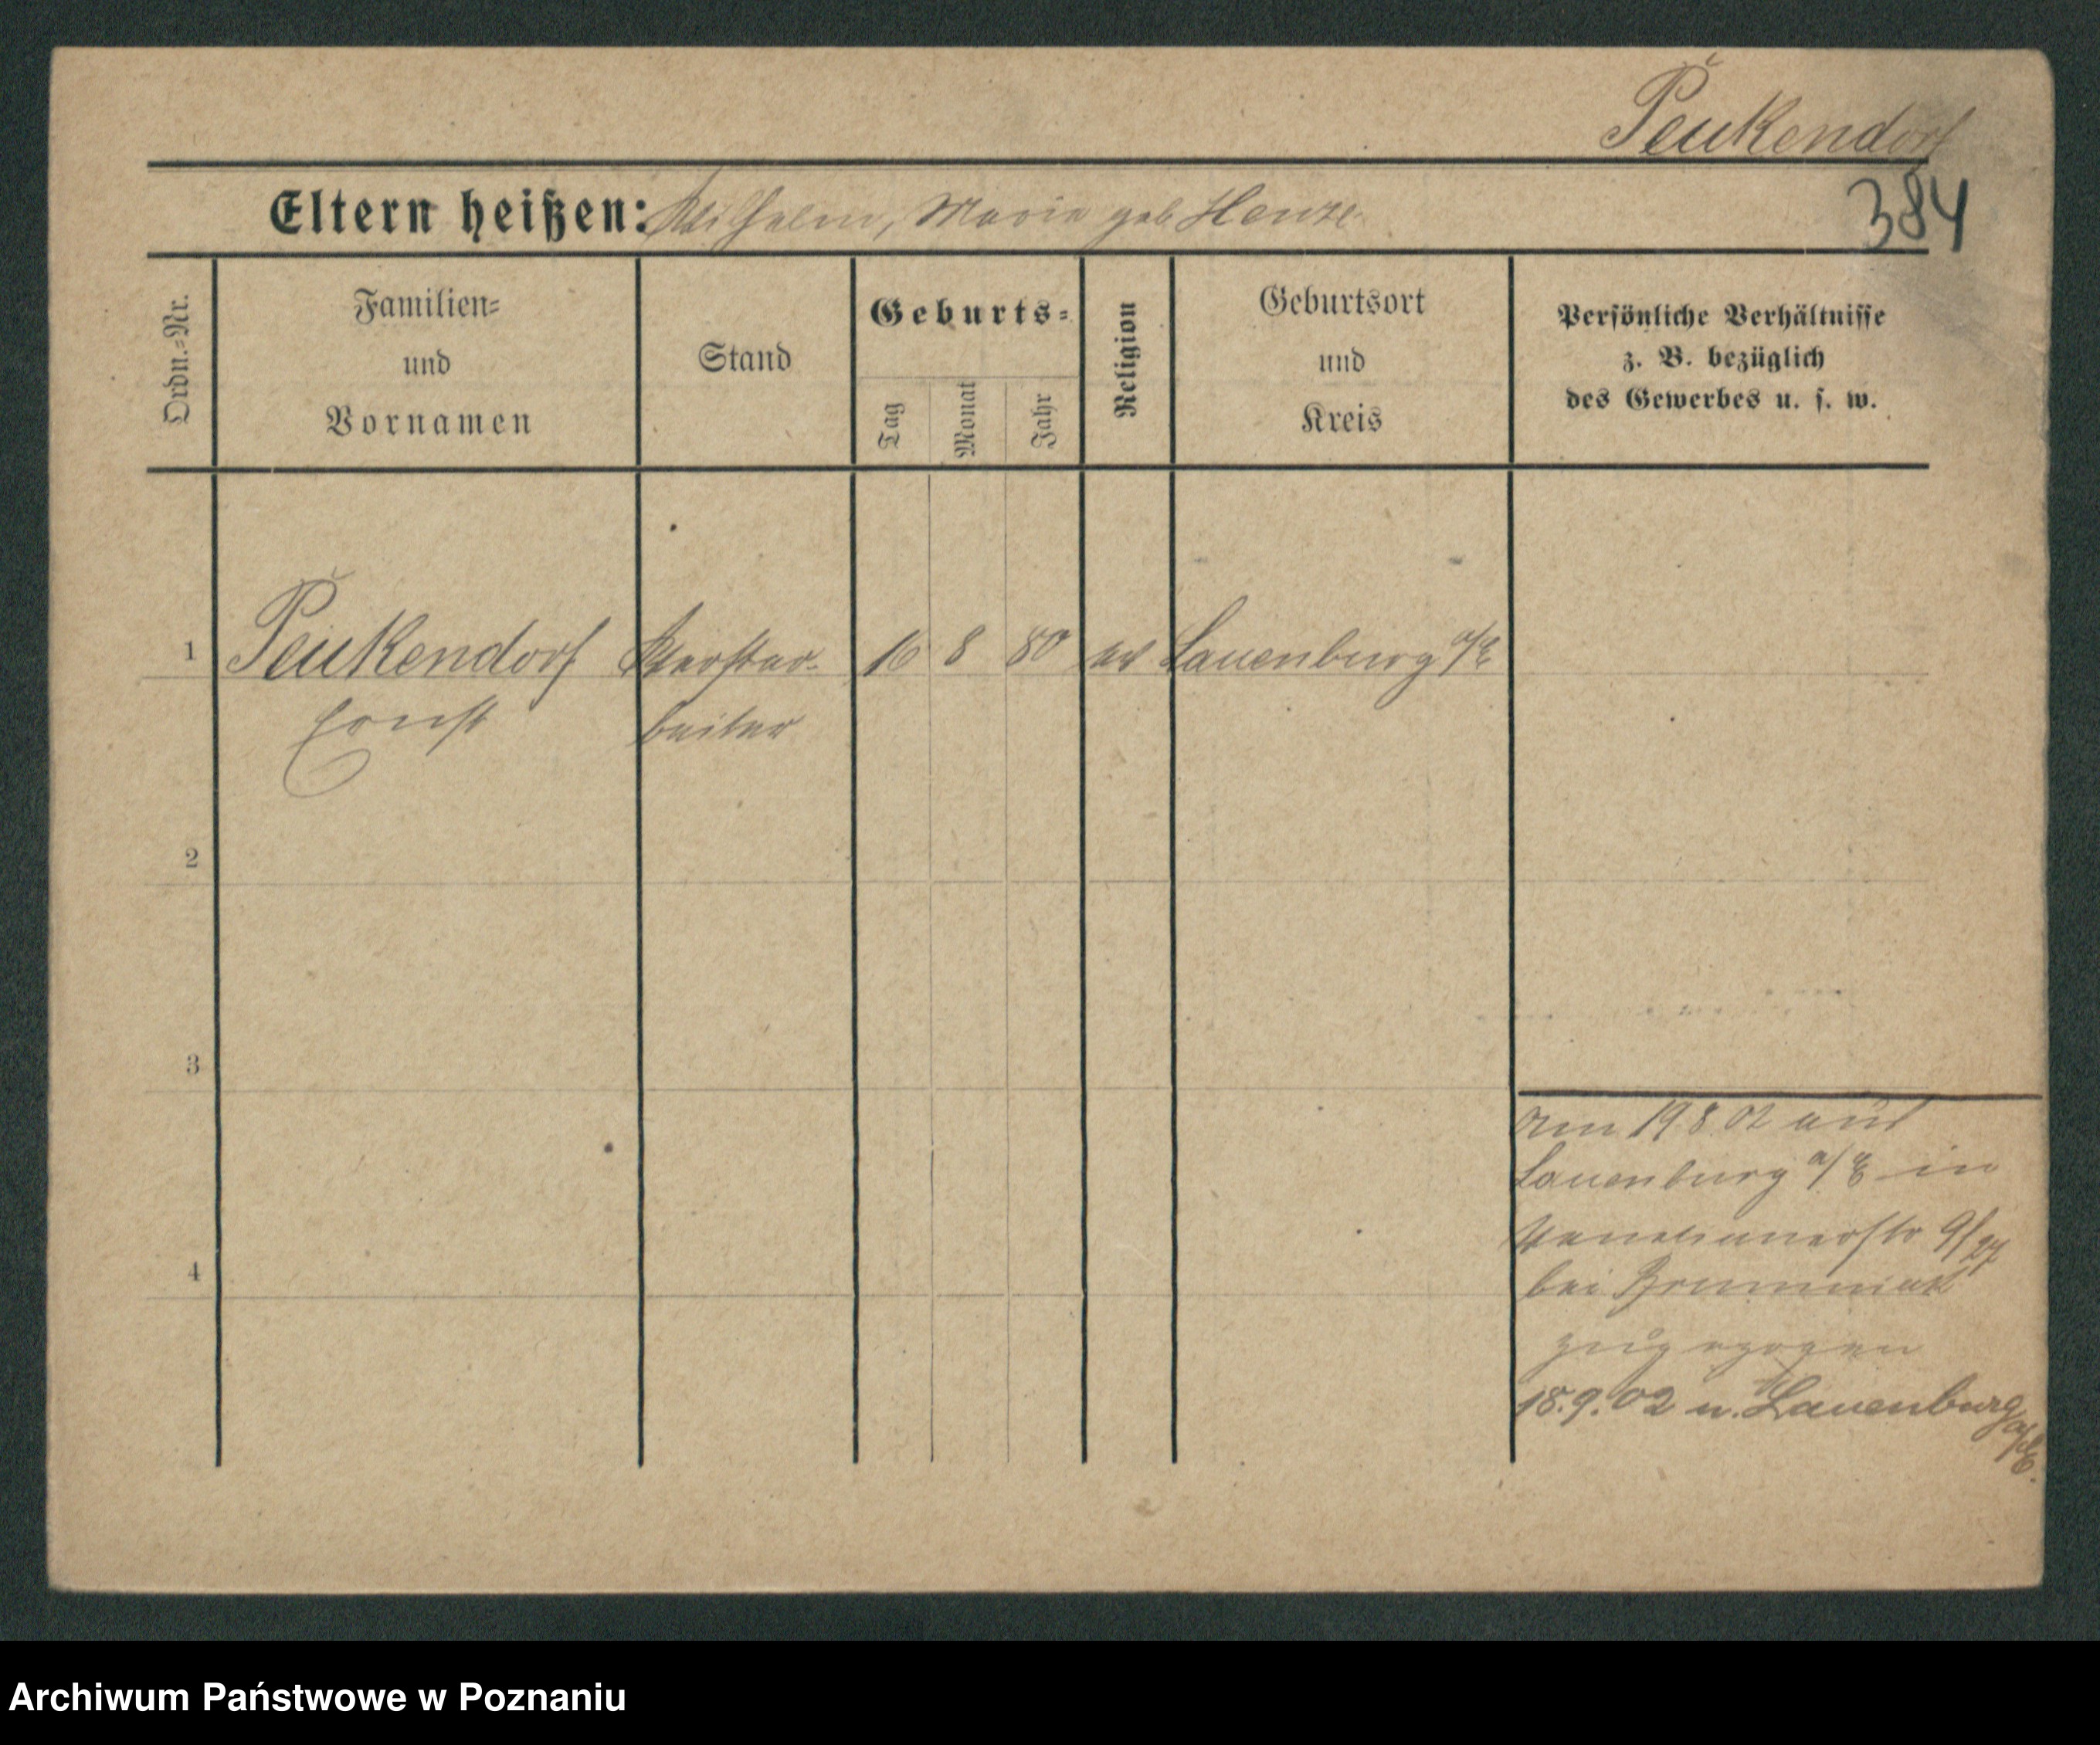 Peukendorf
Eltern heißen: Wilhelm, Marie geb Henze
384
Ordn.-Nr.
Familien-
und
Vornamen
Stand
Geburts-
Tag
Monat
Jahr
Religion
Geburtsort
und
Kreis
Persönliche Verhältnisse
z. B. bezüglich
des Gewerbes u. s. w.
1 Peukendorf 16 8 80 ev Lauenburg a/E
Ernst beiter
2
3
4
am 19 8 02 aus
Lauenburg a/E in
Venetianerstr 9/27
bei
zugezogen
18.9.02 n. Lauenburg
a/E.
Archiwum Państwowe w Poznaniu